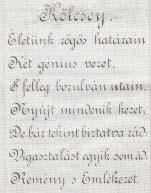 Kölcsey.
Életünk rögös határain
Két génius vezet,
S felleg borulván utain,
Nyújt mindenik kezet;
De bár tekint biztatva rád,
Vigasztalást egyik sem ád,
Remény s Emlékezet.